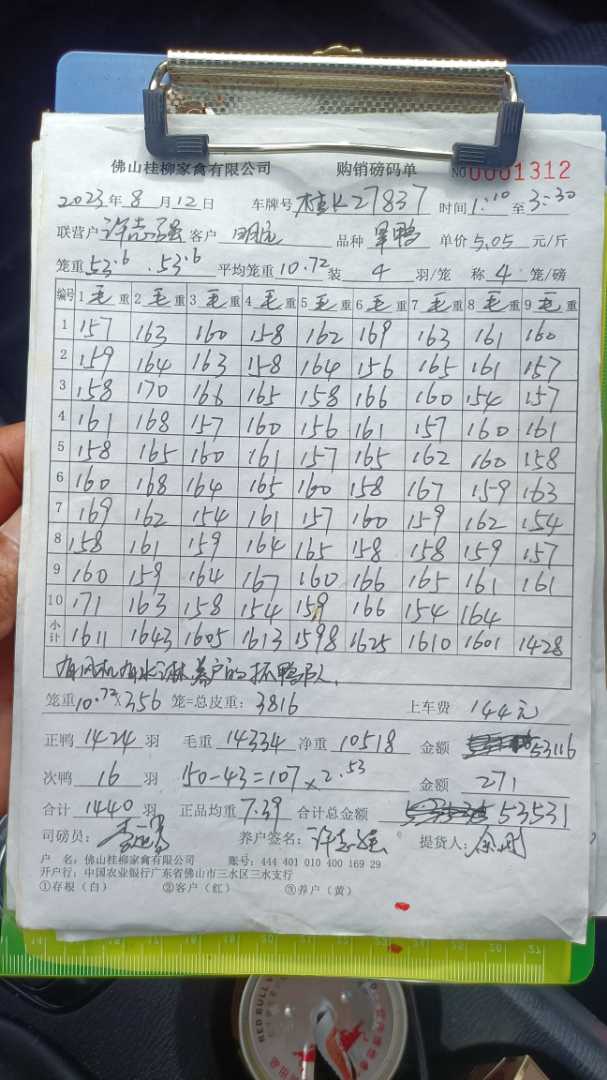 佛山桂柳家禽有限公司 购销磅码单 NO 0001312
2023年 8 月 12 日 车牌号 桂K27837 时间 1:10 至 3:30
联营户 许志强 客户 品种 单价 5.05 元/斤
笼重 53.6 . 53.6 平均笼重 10.72 装 4 羽/笼 称 4 笼/磅
编号 1 毛 重 2 毛 重 3 毛 重 4 毛 重 5 毛 重 6 毛 重 7 毛 重 8 毛 重 9 毛 重
1 157 163 160 158 162 169 163 161 160
2 159 164 163 158 164 156 165 161 157
3 158 170 166 165 158 166 160 154 157
4 161 168 157 160 156 161 157 160 161
5 158 165 160 161 157 165 162 160 158
6 160 168 164 165 160 158 167 159 163
7 169 162 154 161 157 160 159 162 154
8 158 161 159 164 165 158 158 159 157
9 160 159 164 167 160 166 165 161 161
10 171 163 158 154 159 166 154 164
小计 1611 1643 1605 1613 1598 1625 1610 1601 1428
有风机有水淋养户的抓鸭队.
笼重 10.72×356 笼=总皮重: 3816 上车费 144元
正鸭 1424 羽 毛重 14334 净重 10518 金额 53116
次鸭 16 羽 150-43=107×2.53 金额 271
合计 1440 羽 正品均重 7.39 合计总金额 53531
司磅员: 养户签名: 许志强 提货人:
户 名: 佛山桂柳家禽有限公司 账号: 444 401 010 400 169 29
开户行: 中国农业银行广东省佛山市三水区三水支行
①存根（白） ②客户（红） ③养户（黄）
14 15 16 17 18 19 20 21 22 23 24 25 26 27
RED BULL